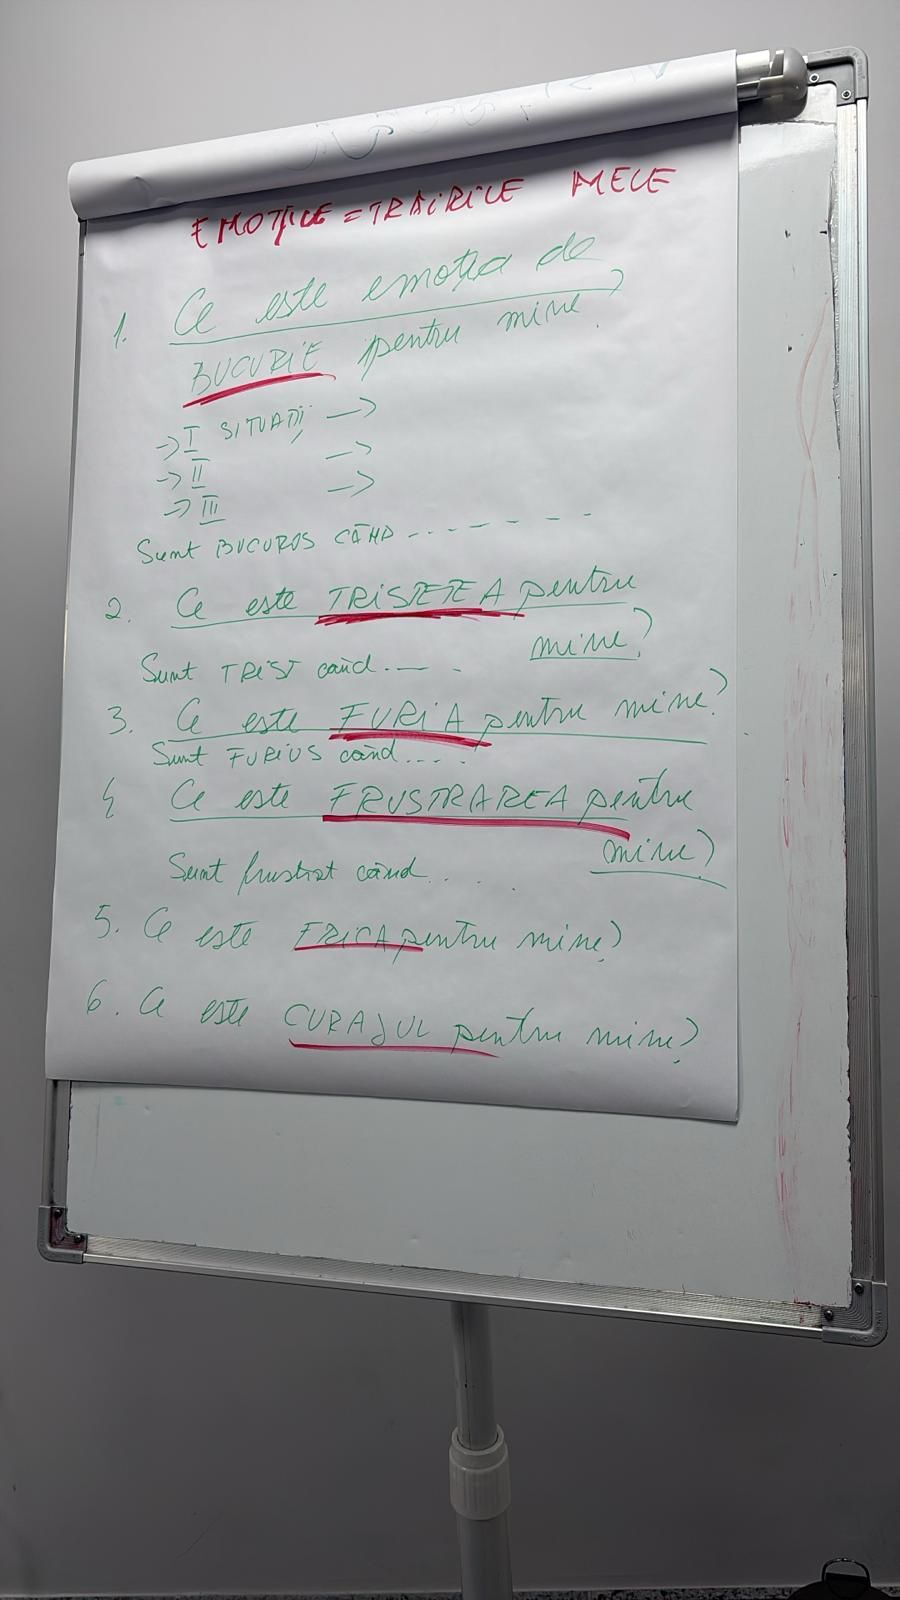 EMOȚIILE = TRĂIRILE MELE
1. Ce este emoția de
BUCURIE pentru mine?
→ I SITUAȚII →
→ II →
→ III →
Sunt BUCUROS CÂND ..- - - - - -
2. Ce este TRISTETEA pentru
mine?
Sunt TRIST când.-- -
3. Ce este FURIA pentru mine?
Sunt FURIOS când....
4 Ce este FRUSTRAREA pentru
mine?
Sunt frustrat când....
5. Ce este FRICA pentru mine?
6. Ce este CURAJUL pentru mine?